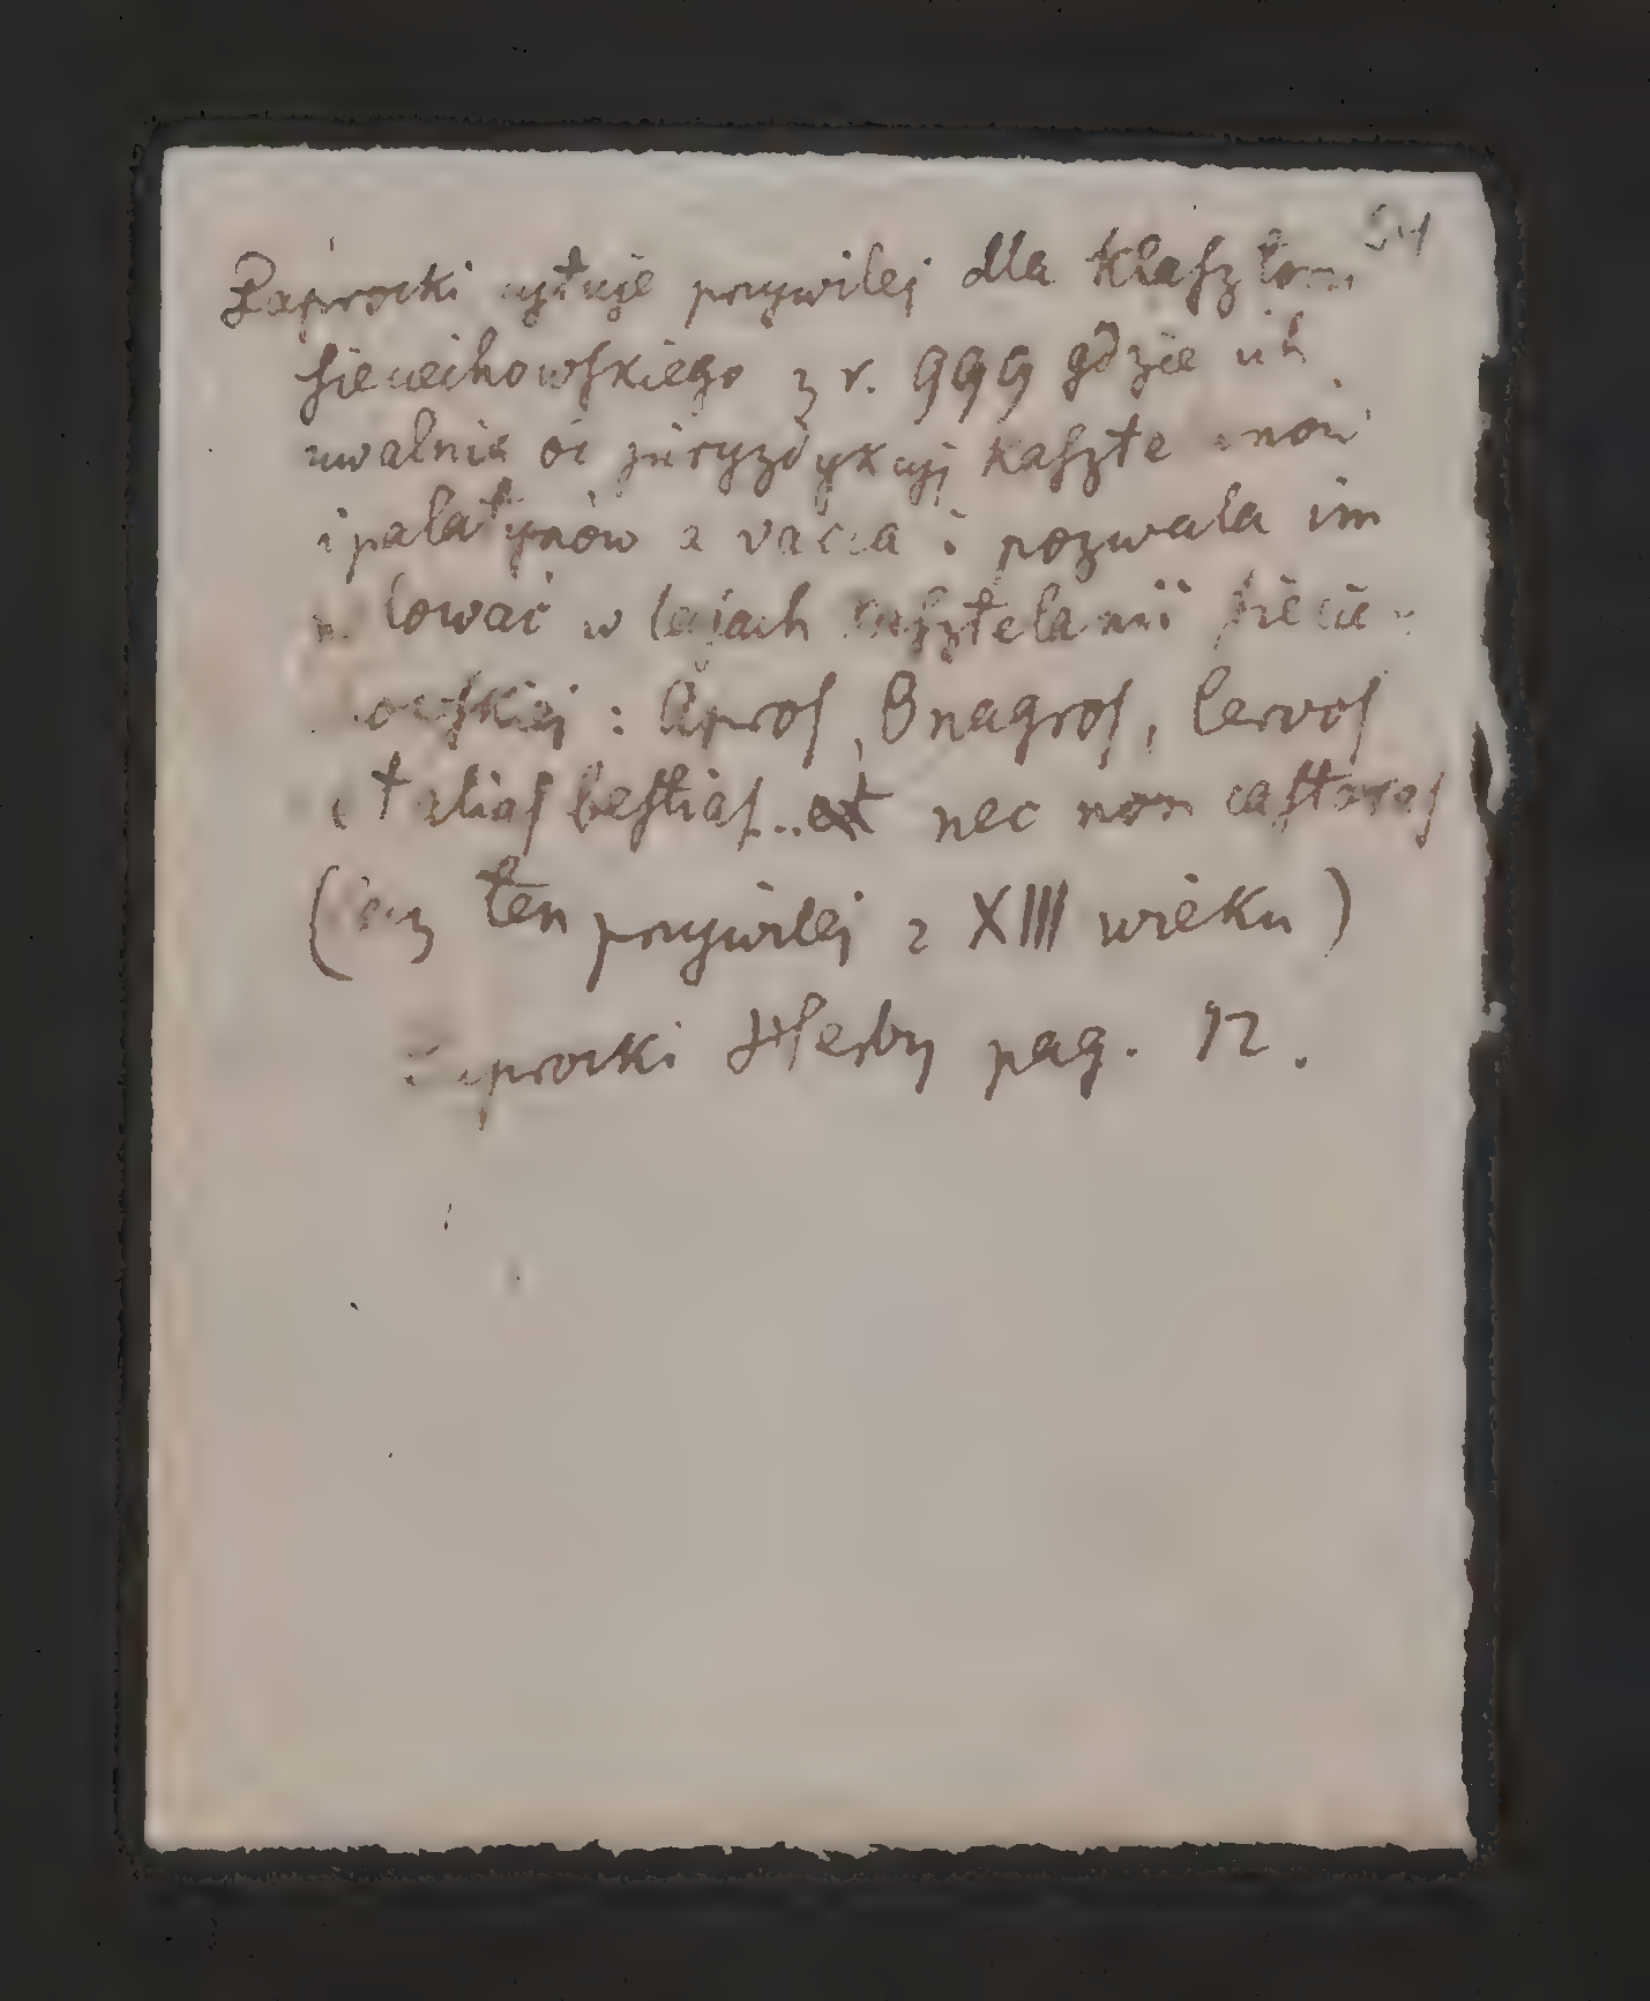 Paprocki cytuje przywilej dla klasztoru
sieciechowskiego z r. 999 gdzie ich
uwalnia od juryzdykcyj kasztelanów
i palatynów a vacca i pozwala im
polować w lasach kasztelanii sieciechowskiej : Apros, Onagros, Cervos
et alias bestias... nec non castores
(ten przywilej z XIII wieku)
Paprocki Herby pag. 12.